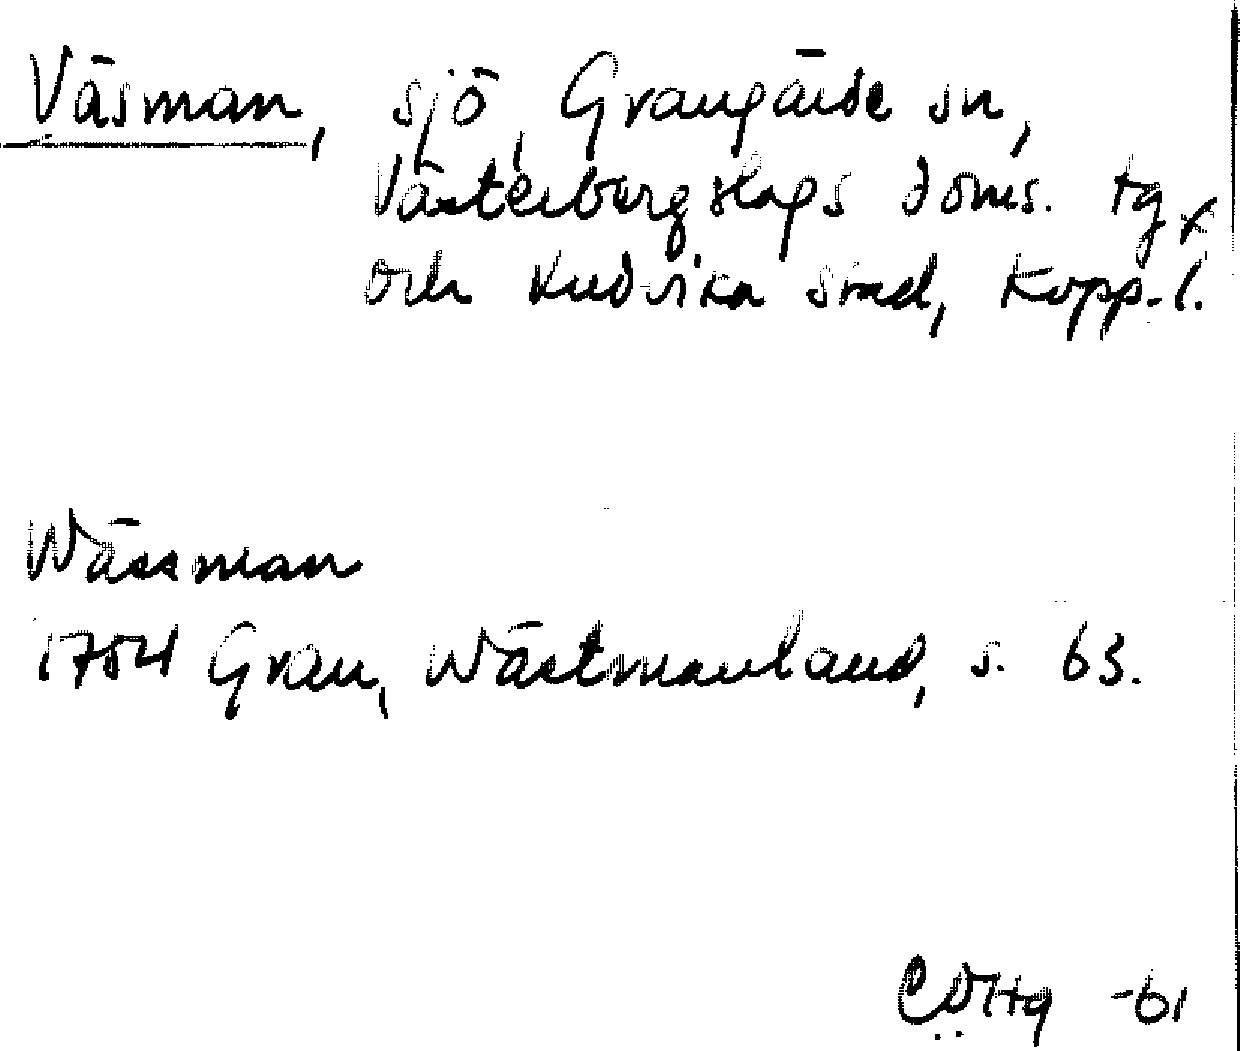 Väsman, sjö, Grangärde sn,
Västerbergslags doms. tg
och Ludvika stad, Kopp. l.
Wässman
1754 Grau, Wästmanland, s. 63.
-61